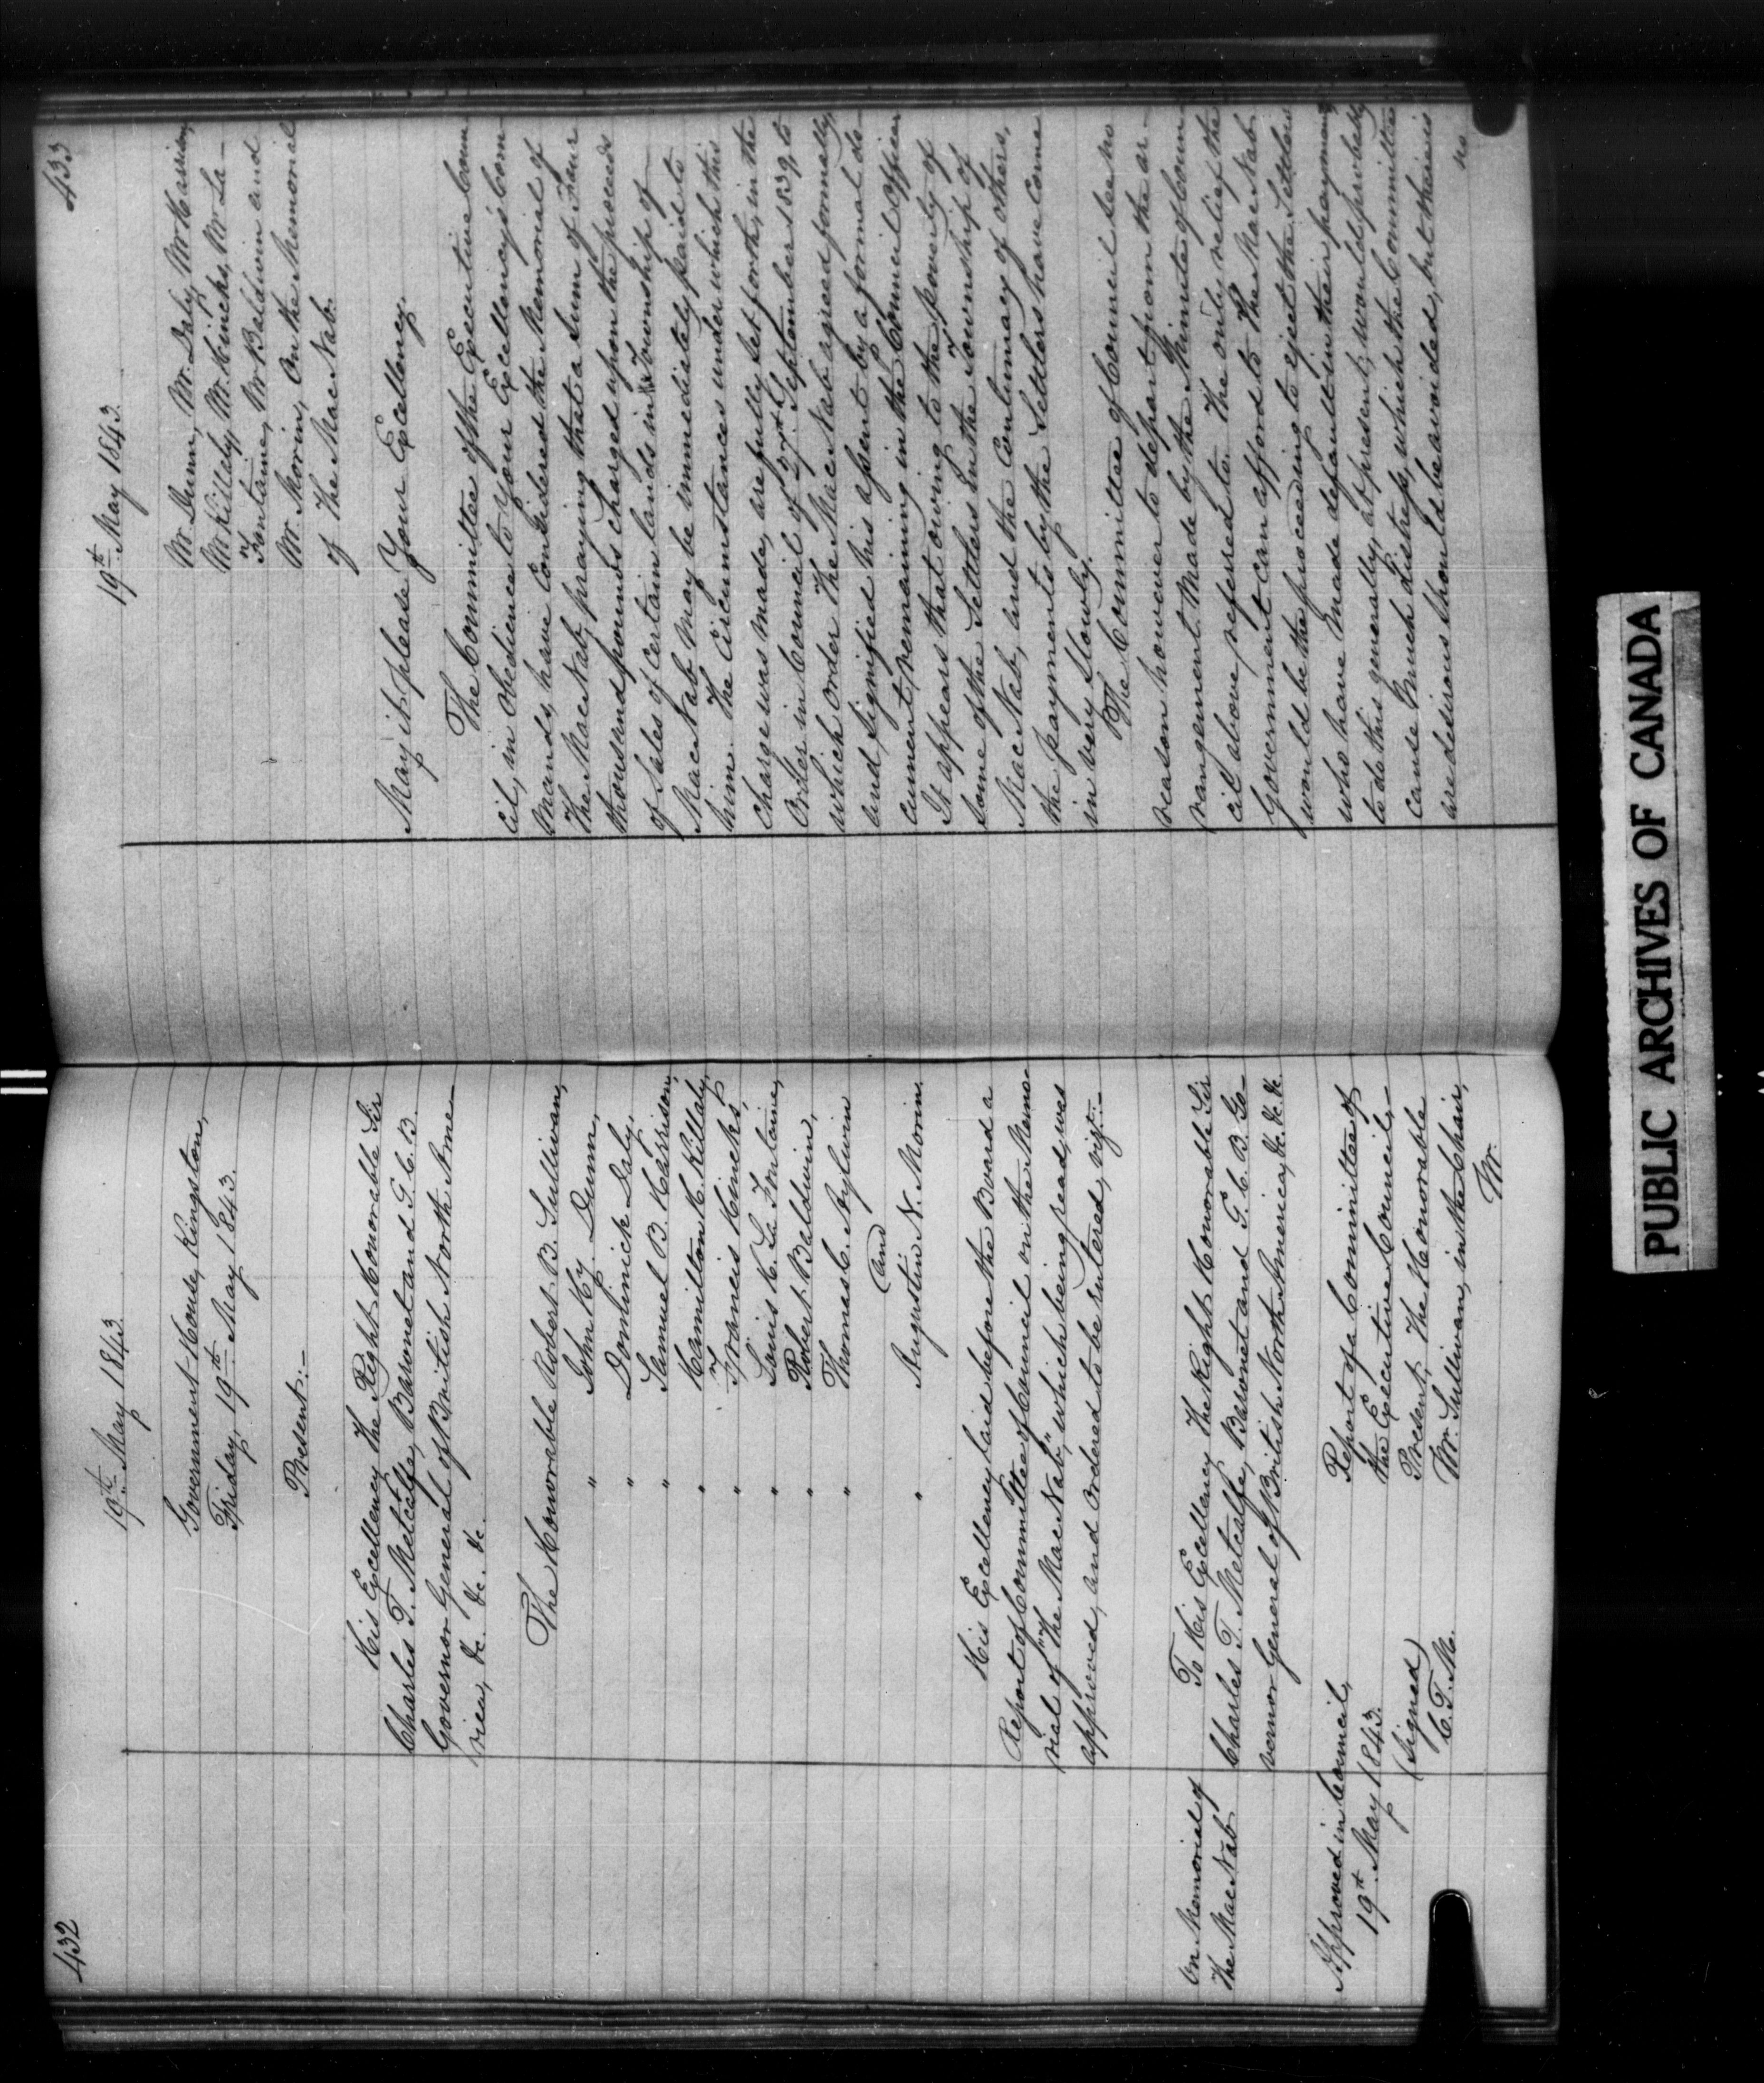 432
19th May 1843
Government House, Kingston,
Friday, 19th May 1843.
Present:—
His Excellency The Right Honorable Sir
Charles T. Metcalfe, Baronet and G.C.B.
Governor General of British North Ame-
rica, &c. &c. &c.
The Honorable Robert B. Sullivan,
" John Hy. Dunn,
" Dominick Daly,
" Samuel B. Harrison,
" Hamilton H. Killaly,
" Francis Hincks,
" Louis H. La Fontaine,
" Robert Baldwin,
" Thomas C. Aylwin
and
" Augustin N. Morin.
His Excellency laid before the Board a
Report of Committee of Council on the Memo-
rial of "The Mac Nab," which being read, was
approved, and ordered to be entered, vizt:—
On Memorial of
The Mac Nab
To His Excellency The Right Honorable Sir
Charles T. Metcalfe, Baronet and G.C.B. Go-
vernor General of British North America, &c. &c. &c.
Approved in Council,
19th May 1843.
(Signed)
C.T.M.
Report of a Committee of
the Executive Council,—
Present, The Honorable
Mr. Sullivan, in the Chair,
Mr.
433
19th May 1843.
Mr Dunn, Mr. Daly, Mr Harrison,
Mr Killaly, Mr. Hincks, Mr La-
Fontaine, Mr Baldwin and
Mr. Morin, On the Memorial
of The Mac Nab.
May it please Your Excellency.
The Committee of the Executive Coun
cil, in obedience to Your Excellency's Com
mands, have considered the Memorial of
The Mac Nab, praying that a sum of Four
thousand pounds charged upon the proceeds
of Sales of certain lands in Township of
Mac Nab may be immediately paid to
him. The Circumstances under which this
charge was made, are fully set forth, in the
Order in Council of 27th September 1839, to
which order The Mac Nab agreed formally,
and signified his assent by a formal do-
cument, remaining in the Council Office.
It appears that owing to the poverty of
some of the Settlers in the Township of
Mac Nab, and the Contumacy of others,
the payments by the Settlers have come
in very slowly.
The Committee of Council see no
reason however to depart from the ar-
rangement made by the Minute of Coun
cil above referred to. The only relief the
Government can afford to The Mac Nab
would be the proceeding to eject the Settlers
who have made default in their payments,
to do this generally, at present, would probably
cause much distress, which the Committee
are desirous should be avoided, but there is
no
PUBLIC ARCHIVES OF CANADA